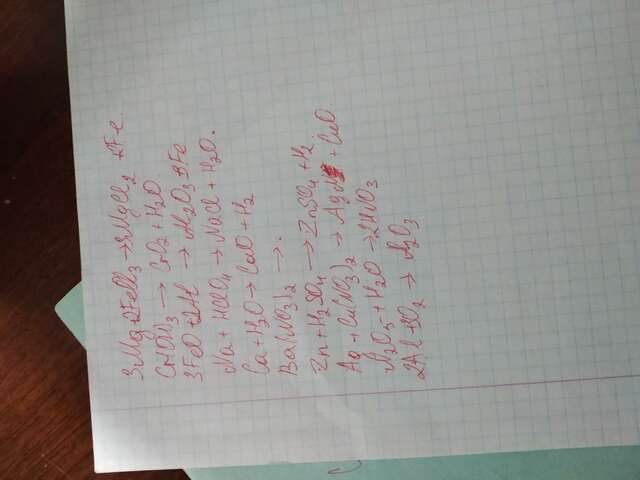 3Mg+2FeCl3→3MgCl2+2Fe
→CO2+H2O.
3FeO+2Al→Al2O3+3Fe
Na+HClO4→NaCl+H2O.
Ca+H2O→CaO+H2
Ba(NO3)2→.
Zn+H2SO4→ZnSO4+H2.
Ag+Cu(NO3)2→ +CuO
N2O5+H2O→2HNO3
→Al2O3